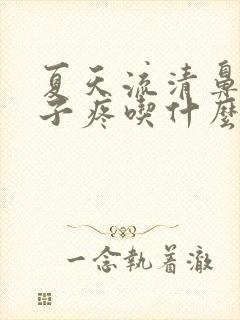 夏天流清鼻
子疼喫什麼
一念執着澈